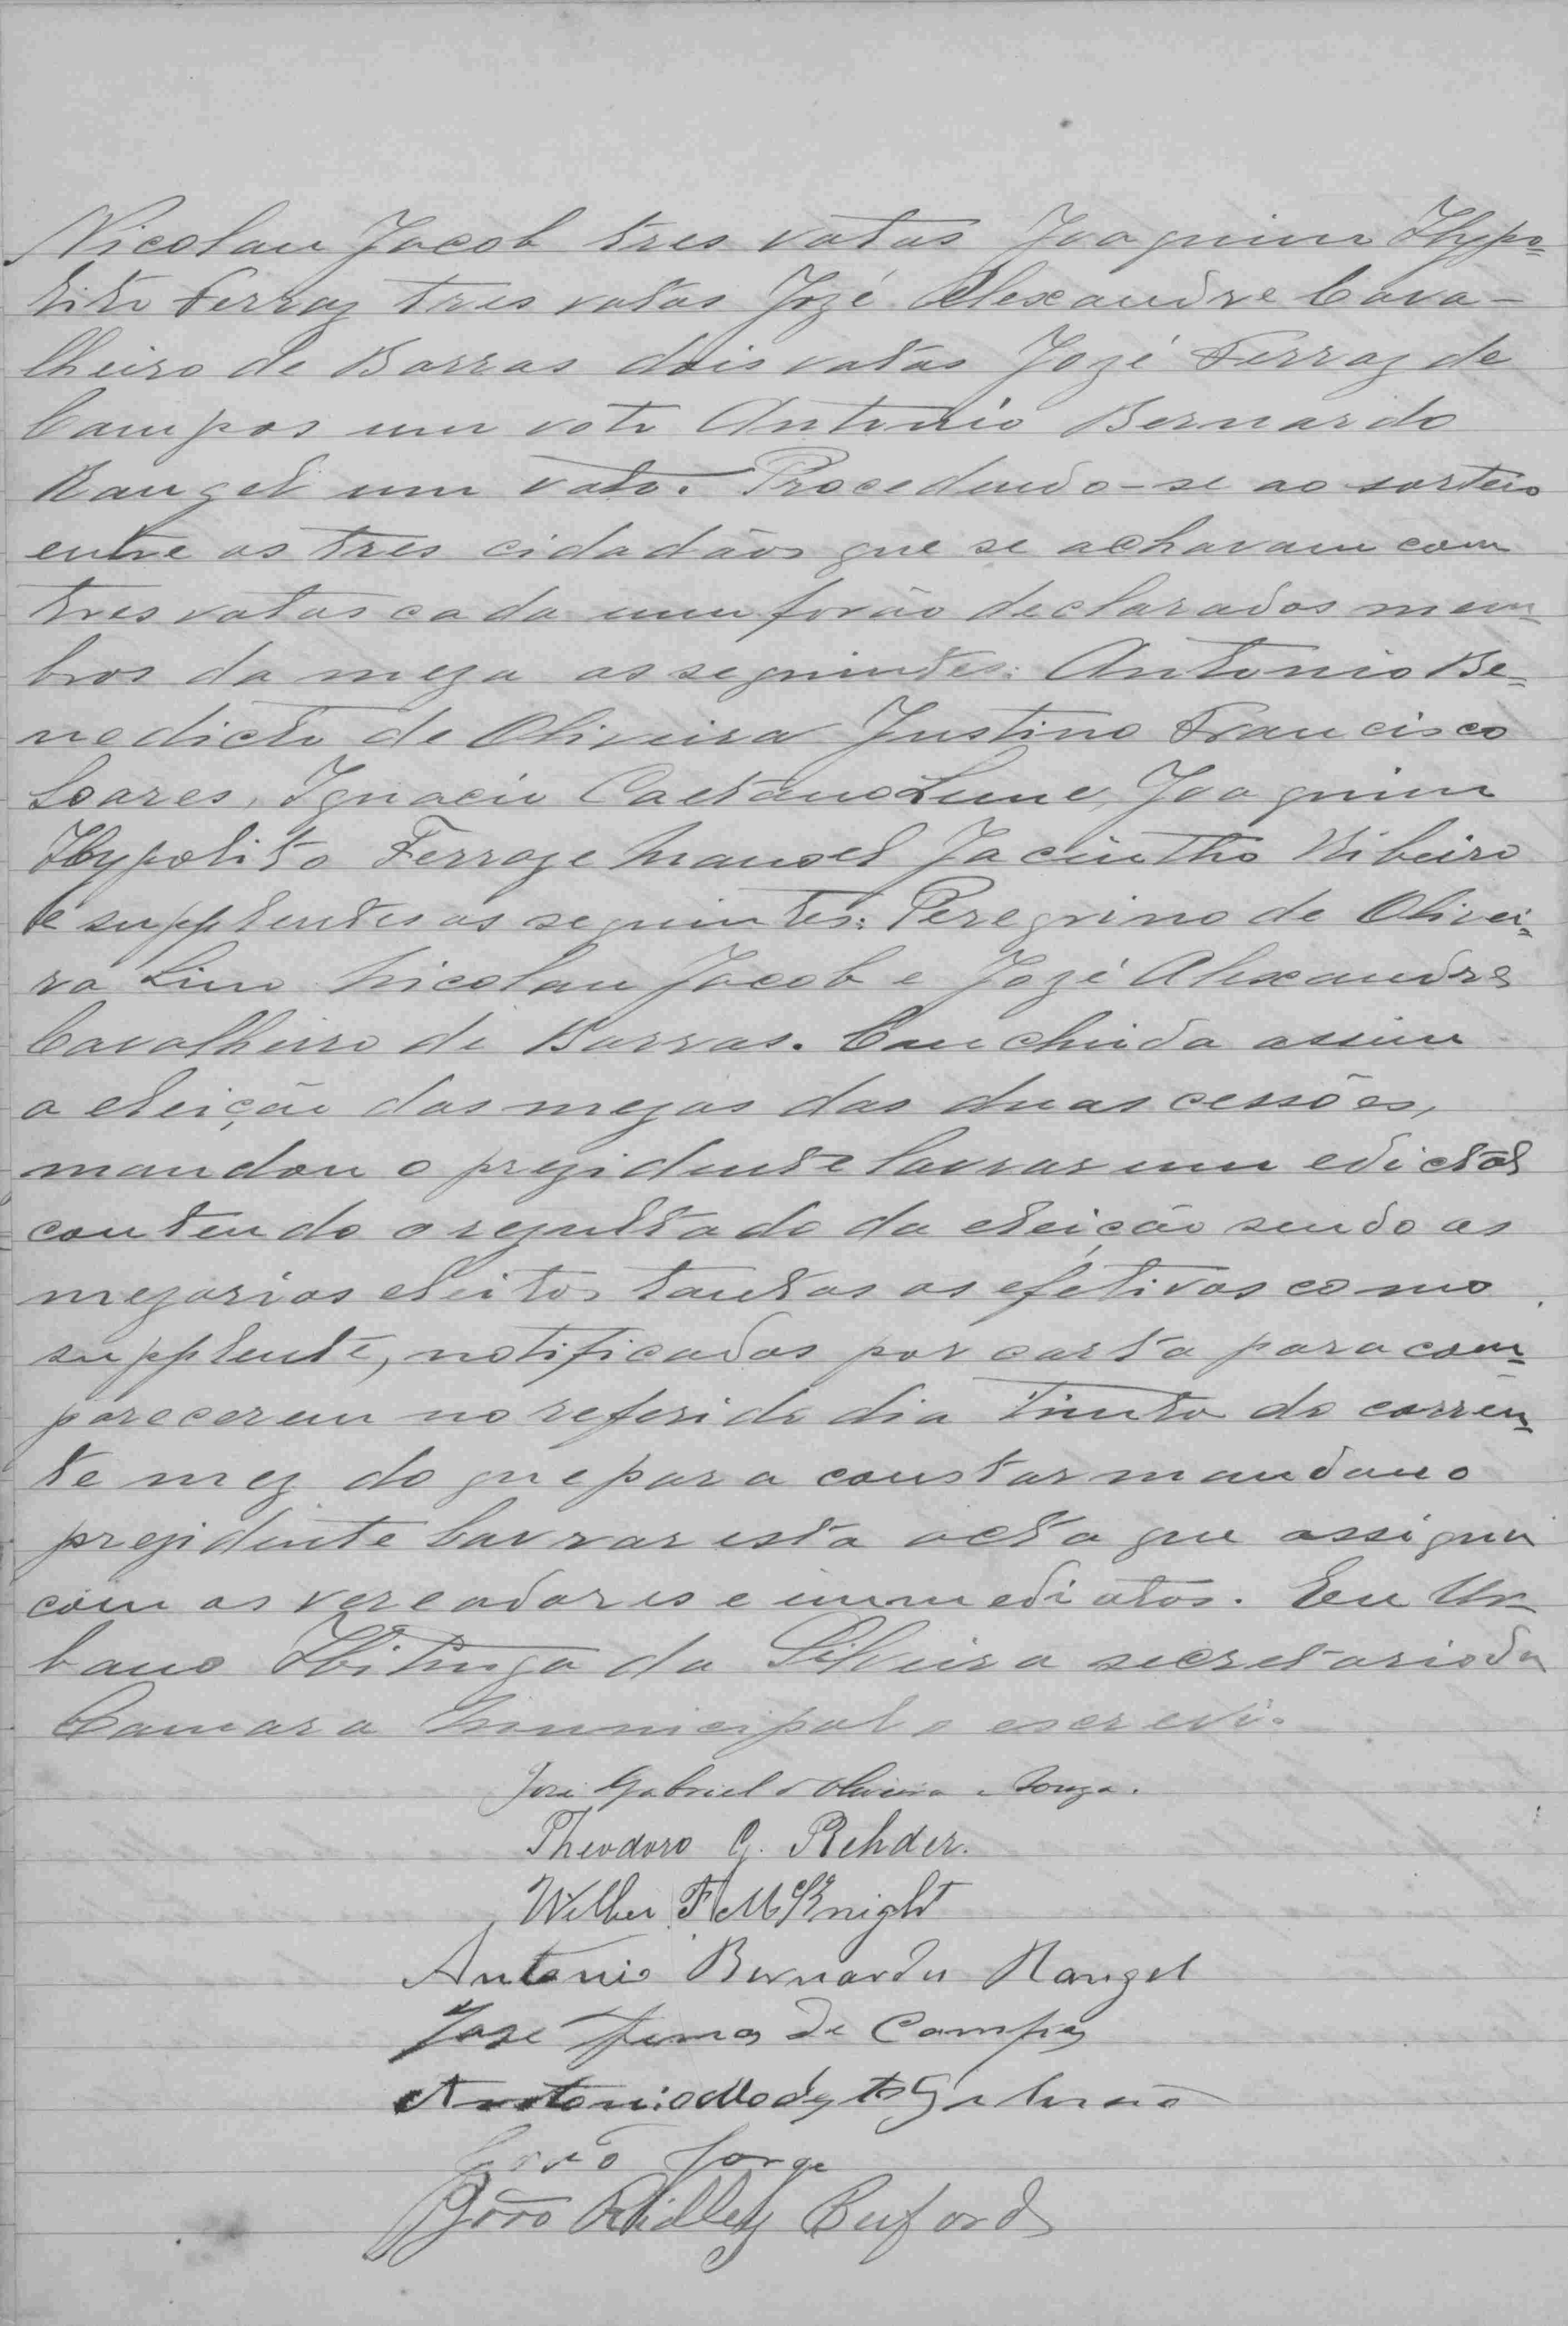 Nicolau Jacob tres votos Joaquim Hypo=
lito Ferraz tres votos Jozé Alexandre Cava-
lheiro de Barros dois votos Jozé Ferraz de
Campos um voto Antonio Bernardo
Rangel um voto. Procedendo-se ao sorteio
entre os tres cidadãos que se achavam com
tres votos cada um forão declarados mem
bros da meza os seguintes: Antonio Be=
nedicto de Oliveira Justino Francisco
Soares, Ignacio Caetano Leme, Joaquim
Hypolito Ferraz e Manoel Jacintho Ribeiro
e supplentes os seguintes: Peregrino de Olivei=
ra Lino Nicolau Jacob e Jozé Alexandre
Cavalheiro de Barros. Concluida assim
a eleição das mezas das duas cessões,
mandou o prezidente lavrar um edictal
contendo o rezultado da eleição sendo os
mezarios eleitos tantos os efetivos como
supplente, notificados por carta para com=
parecerem no referido dia trinta do corren=
te mez do que para constar mandou o
prezidente lavrar esta acta que assigna
com os vereadores e immediatos. Eu Ur
bano Ibitinga da Silveira secretario da
Camara Municipal o escrevi.
José Gabriel d'Oliveira e Souza.
Theodoro G. Rehder.
Wilber F McKnight
Antonio Bernardo Rangel
Jose Ferraz de Campos
Antonio
João Jorge
João Ridley Buford